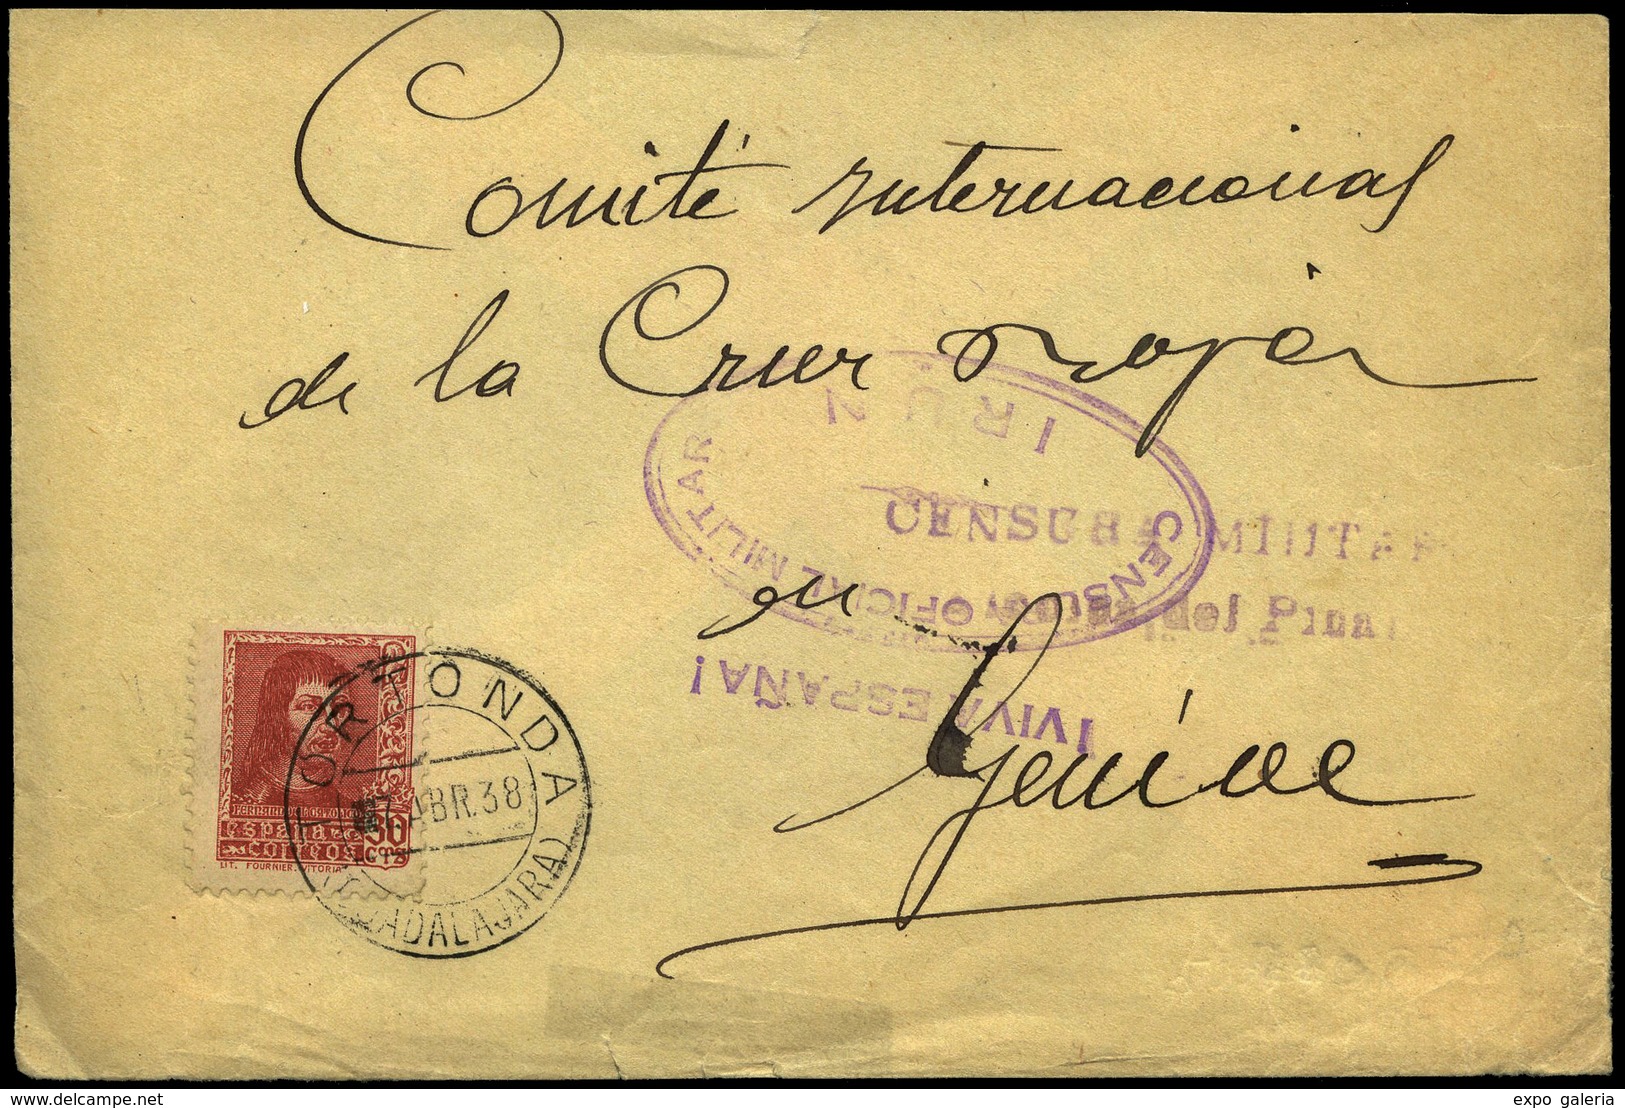 Comité Internacional
de la Cruz Roja
IRUN
CENSURA MILITAR
CENSURA OFICIAL MILITAR
en
¡VIVA ESPAÑA!
Genève
TORTONDA
7 ABR.38
(GUADALAJARA)
ESPAÑA
CORREOS
30
CTS
LIT. FOURNIER. VITORIA
delcampe.net
expo galeria